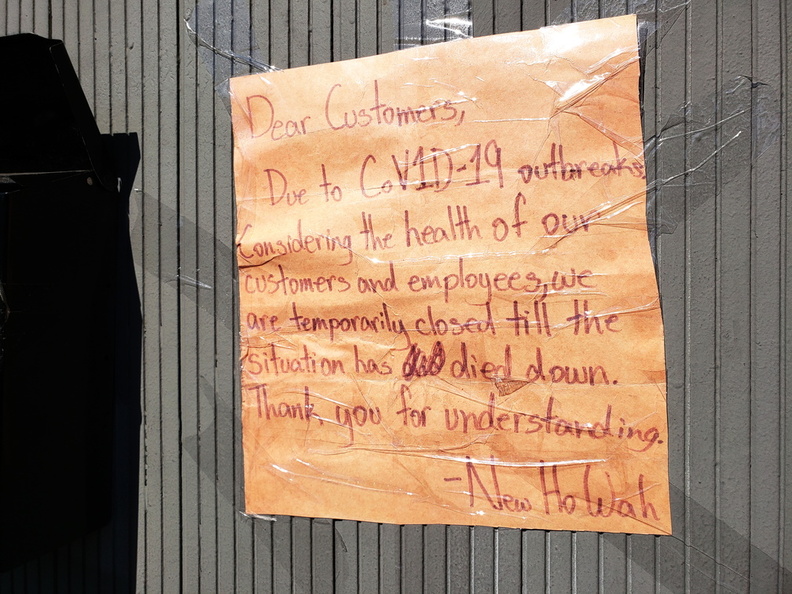 Dear Customers,
Due to CoVID-19 outbreaks,
Considering the health of our
customers and employees, we
are temporarily closed till the
situation has died down.
Thank you for understanding.
-New Ho Wah